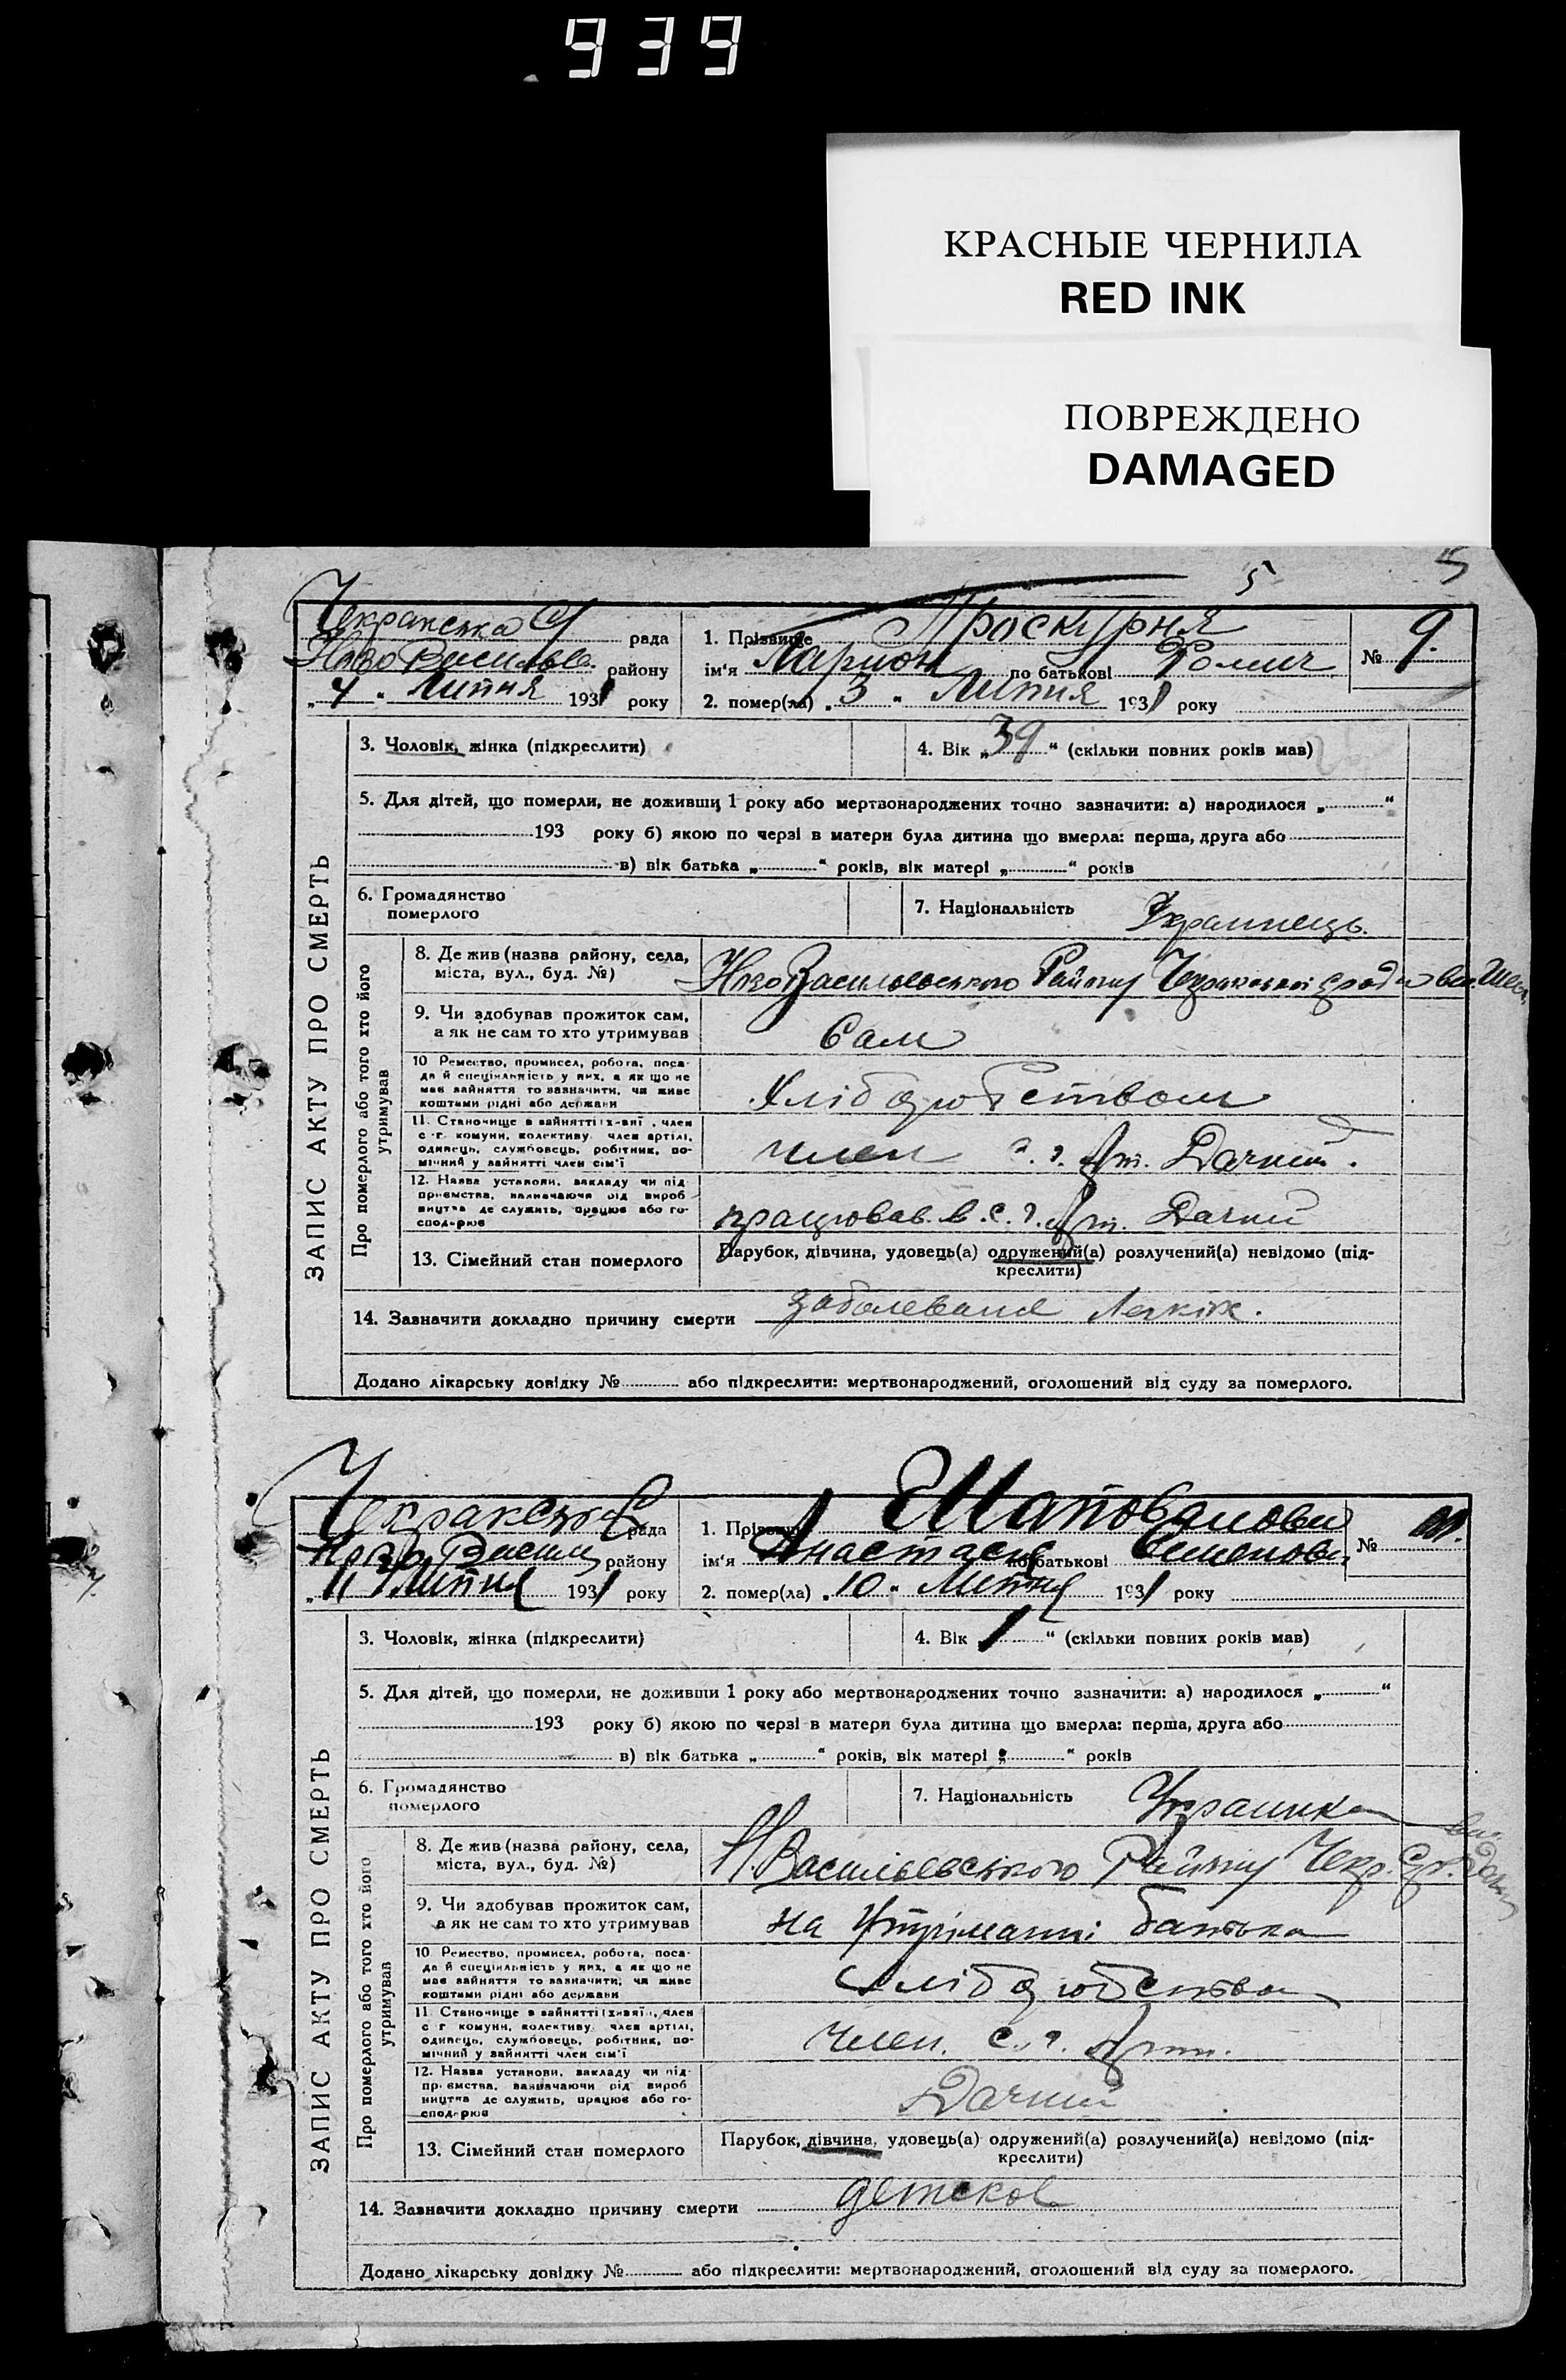 939
КРАСНЫЕ ЧЕРНИЛА
RED INK
ПОВРЕЖДЕНО
DAMAGED
5 5
ЗАПИС АКТУ ПРО СМЕРТЬ
Чекракська рада
Ново Василье. району
„4“ Липня 1931 року
1. Прізвище Проскурня
ім'я Ларион по батькові
№ 9.
2. помер(ла) „3“ Липня 1931 року
3. Чоловік, жінка (підкреслити)
4. Вік „39“ (скільки повних років мав)
5. Для дітей, що померли, не доживши 1 року або мертвонароджених точно зазначити: а) народилося „ “
193 року б) якою по черзі в матери була дитина що вмерла: перша, друга або
в) вік батька „ “ років, вік матері „ “ років
6. Громадянство
померлого
7. Національність Украинець.
Про померлого або того хто його
утримував
8. Де жив (назва району, села,
міста, вул., буд. №)
Ново Васильевського Району
9. Чи здобував прожиток сам,
а як не сам то хто утримував
Сам
10 Ремество, промисел, робота, поса-
да й спеціяльність у них, а як що не
мав зайняття то зазначити, чи живе
коштами рідні або держави
11. Становище в зайнятті (хазяї, член
с.-г. комуни, колективу, член артілі,
одинець, службовець, робітник, по-
мічний у зайнятті член сім'ї
член с. г. Арт. Дачний.
12. Назва установи, закладу чи під-
приємства, зазначаючи від вироб-
ництва де служить, працює або го-
сподарює
працював в. с. г. Арт. Дачний
13. Сімейний стан померлого
Парубок, дівчина, удовець(а) одружений(а) розлучений(а) невідомо (під-
креслити)
14. Зазначити докладно причину смерти заболевания Легких.
Додано лікарську довідку № або підкреслити: мертвонароджений, оголошений від суду за померлого.
ЗАПИС АКТУ ПРО СМЕРТЬ
рада
району
„11 Липня 1931 року
1. Прізвище Шаповалова
ім'я Анастасія по батькові Семенов.
№
2. помер(ла) „10“ Липня 1931 року
3. Чоловік, жінка (підкреслити)
4. Вік 1 “ (скільки повних років мав)
5. Для дітей, що померли, не доживши 1 року або мертвонароджених точно зазначити: а) народилося „ “
193 року б) якою по черзі в матери була дитина що вмерла: перша, друга або
в) вік батька „ “ років, вік матері „ “ років
6. Громадянство
померлого
7. Національність Украинка
Про померлого або того хто його
утримував
8. Де жив (назва району, села,
міста, вул., буд. №)
Н. Васильевського Району Чекр.
9. Чи здобував прожиток сам,
а як не сам то хто утримував
на Утріманні батька
10 Ремество, промисел, робота, поса-
да й спеціяльність у них, а як що не
мав зайняття то зазначити, чи живе
коштами рідні або держави
11. Становище в зайнятті (хазяї, член
с.-г. комуни, колективу, член артілі,
одинець, службовець, робітник, по-
мічний у зайнятті член сім'ї
член. с. г. Арт.
12. Назва установи, закладу чи під-
приємства, зазначаючи від вироб-
ництва де служить, працює або го-
сподарює
Дачний
13. Сімейний стан померлого
Парубок, дівчина, удовець(а) одружений(а) розлучений(а) невідомо (під-
креслити)
14. Зазначити докладно причину смерти детская
Додано лікарську довідку № або підкреслити: мертвонароджений, оголошений від суду за померлого.